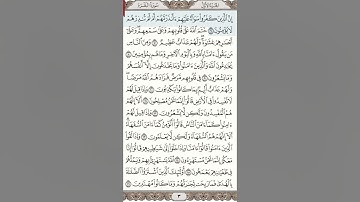 الجزء الأول سورة البقرة
إِنَّ ٱلَّذِينَ كَفَرُوا۟ سَوَآءٌ عَلَيْهِمْ ءَأَنذَرْتَهُمْ أَمْ لَمْ تُنذِرْهُمْ
لَا يُؤْمِنُونَ ٦ خَتَمَ ٱللَّهُ عَلَىٰ قُلُوبِهِمْ وَعَلَىٰ سَمْعِهِمْ وَعَلَىٰٓ
أَبْصَٰرِهِمْ غِشَٰوَةٌ وَلَهُمْ عَذَابٌ عَظِيمٌ ٧ وَمِنَ ٱلنَّاسِ
مَن يَقُولُ ءَامَنَّا بِٱللَّهِ وَبِٱلْيَوْمِ ٱلْءَاخِرِ وَمَا هُم بِمُؤْمِنِينَ ٨
يُخَٰدِعُونَ ٱللَّهَ وَٱلَّذِينَ ءَامَنُوا۟ وَمَا يَخْدَعُونَ إِلَّآ أَنفُسَهُمْ
وَمَا يَشْعُرُونَ ٩ فِى قُلُوبِهِم مَّرَضٌ فَزَادَهُمُ ٱللَّهُ مَرَضًا
وَلَهُمْ عَذَابٌ أَلِيمٌۢ بِمَا كَانُوا۟ يَكْذِبُونَ ١٠ وَإِذَا قِيلَ لَهُمْ
لَا تُفْسِدُوا۟ فِى ٱلْأَرْضِ قَالُوٓا۟ إِنَّمَا نَحْنُ مُصْلِحُونَ ١١
أَلَآ إِنَّهُمْ هُمُ ٱلْمُفْسِدُونَ وَلَٰكِن لَّا يَشْعُرُونَ ١٢ وَإِذَا قِيلَ لَهُمْ
ءَامِنُوا۟ كَمَآ ءَامَنَ ٱلنَّاسُ قَالُوٓا۟ أَنُؤْمِنُ كَمَآ ءَامَنَ ٱلسُّفَهَآءُ
أَلَآ إِنَّهُمْ هُمُ ٱلسُّفَهَآءُ وَلَٰكِن لَّا يَعْلَمُونَ ١٣ وَإِذَا لَقُوا۟
ٱلَّذِينَ ءَامَنُوا۟ قَالُوٓا۟ ءَامَنَّا وَإِذَا خَلَوْا۟ إِلَىٰ شَيَٰطِينِهِمْ قَالُوٓا۟ إِنَّا
مَعَكُمْ إِنَّمَا نَحْنُ مُسْتَهْزِءُونَ ١٤ ٱللَّهُ يَسْتَهْزِئُ بِهِمْ وَيَمُدُّهُمْ
فِى طُغْيَٰنِهِمْ يَعْمَهُونَ ١٥ أُو۟لَٰٓئِكَ ٱلَّذِينَ ٱشْتَرَوُا۟ ٱلضَّلَٰلَةَ
بِٱلْهُدَىٰ فَمَا رَبِحَت تِّجَٰرَتُهُمْ وَمَا كَانُوا۟ مُهْتَدِينَ ١٦
٣